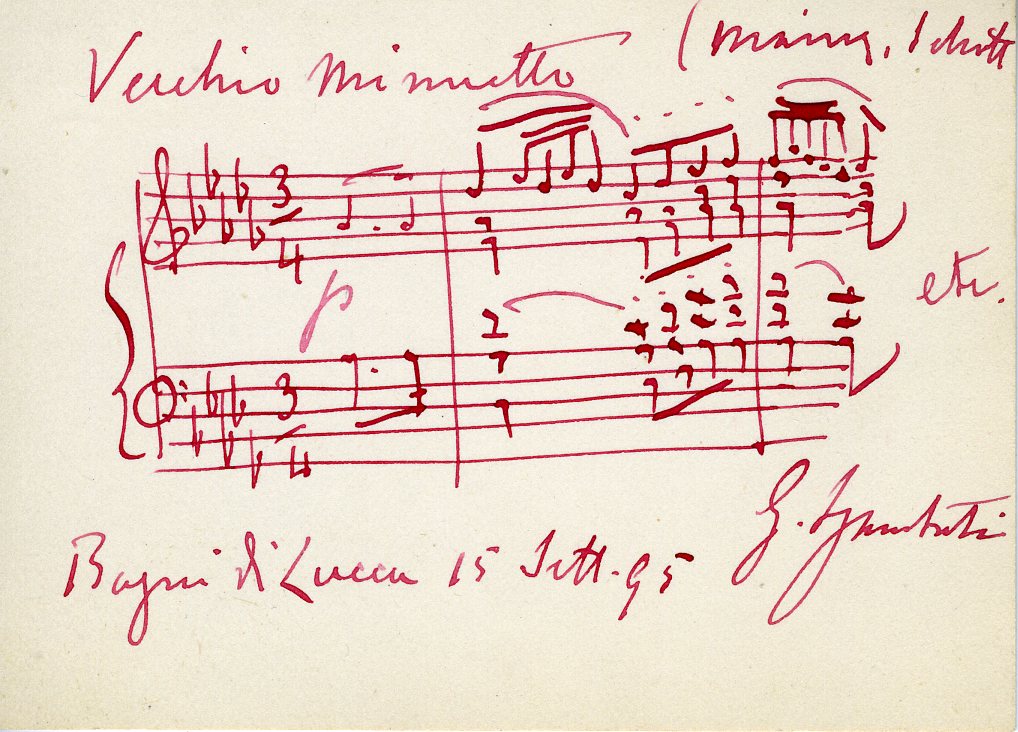 Vecchio Minuetto (Mainz, Schott
3
4
p
etc.
3
4
G. Sgambati
Bagni di Lucca 15 Sett. 95